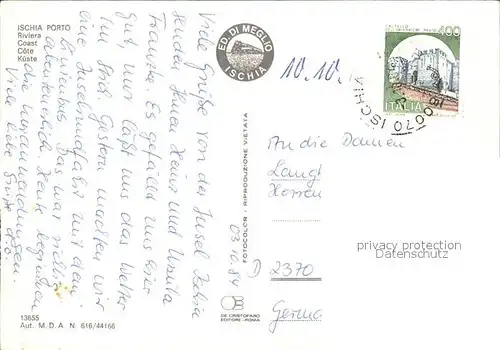 ISCHIA PORTO
Riviera
Coast
Côte
Küste
Viele Grüße von der Insel Ischia
senden Ihnen Heinz und Ursula
Es gefällt uns hier
gut, nur läßt uns das Wetter
im Stich. Gestern machten wir
eine Inselrundfahrt mit dem
Linienbus. Das war
abenteuerlich. Heute beginnen
die
Viele liebe Grüße
ED. DI MEGLIO
ISCHIA
10.10.
400
ITALIA
80070 ISCHIA
An die Damen
Langt
03.10.84
D 2370
FOTOCOLOR - RIPRODUZIONE VIETATA
DE CRISTOFARO
EDITORE - ROMA
13655
Aut. M. D. A. N. 616/44166
privacy protection
Datenschutz